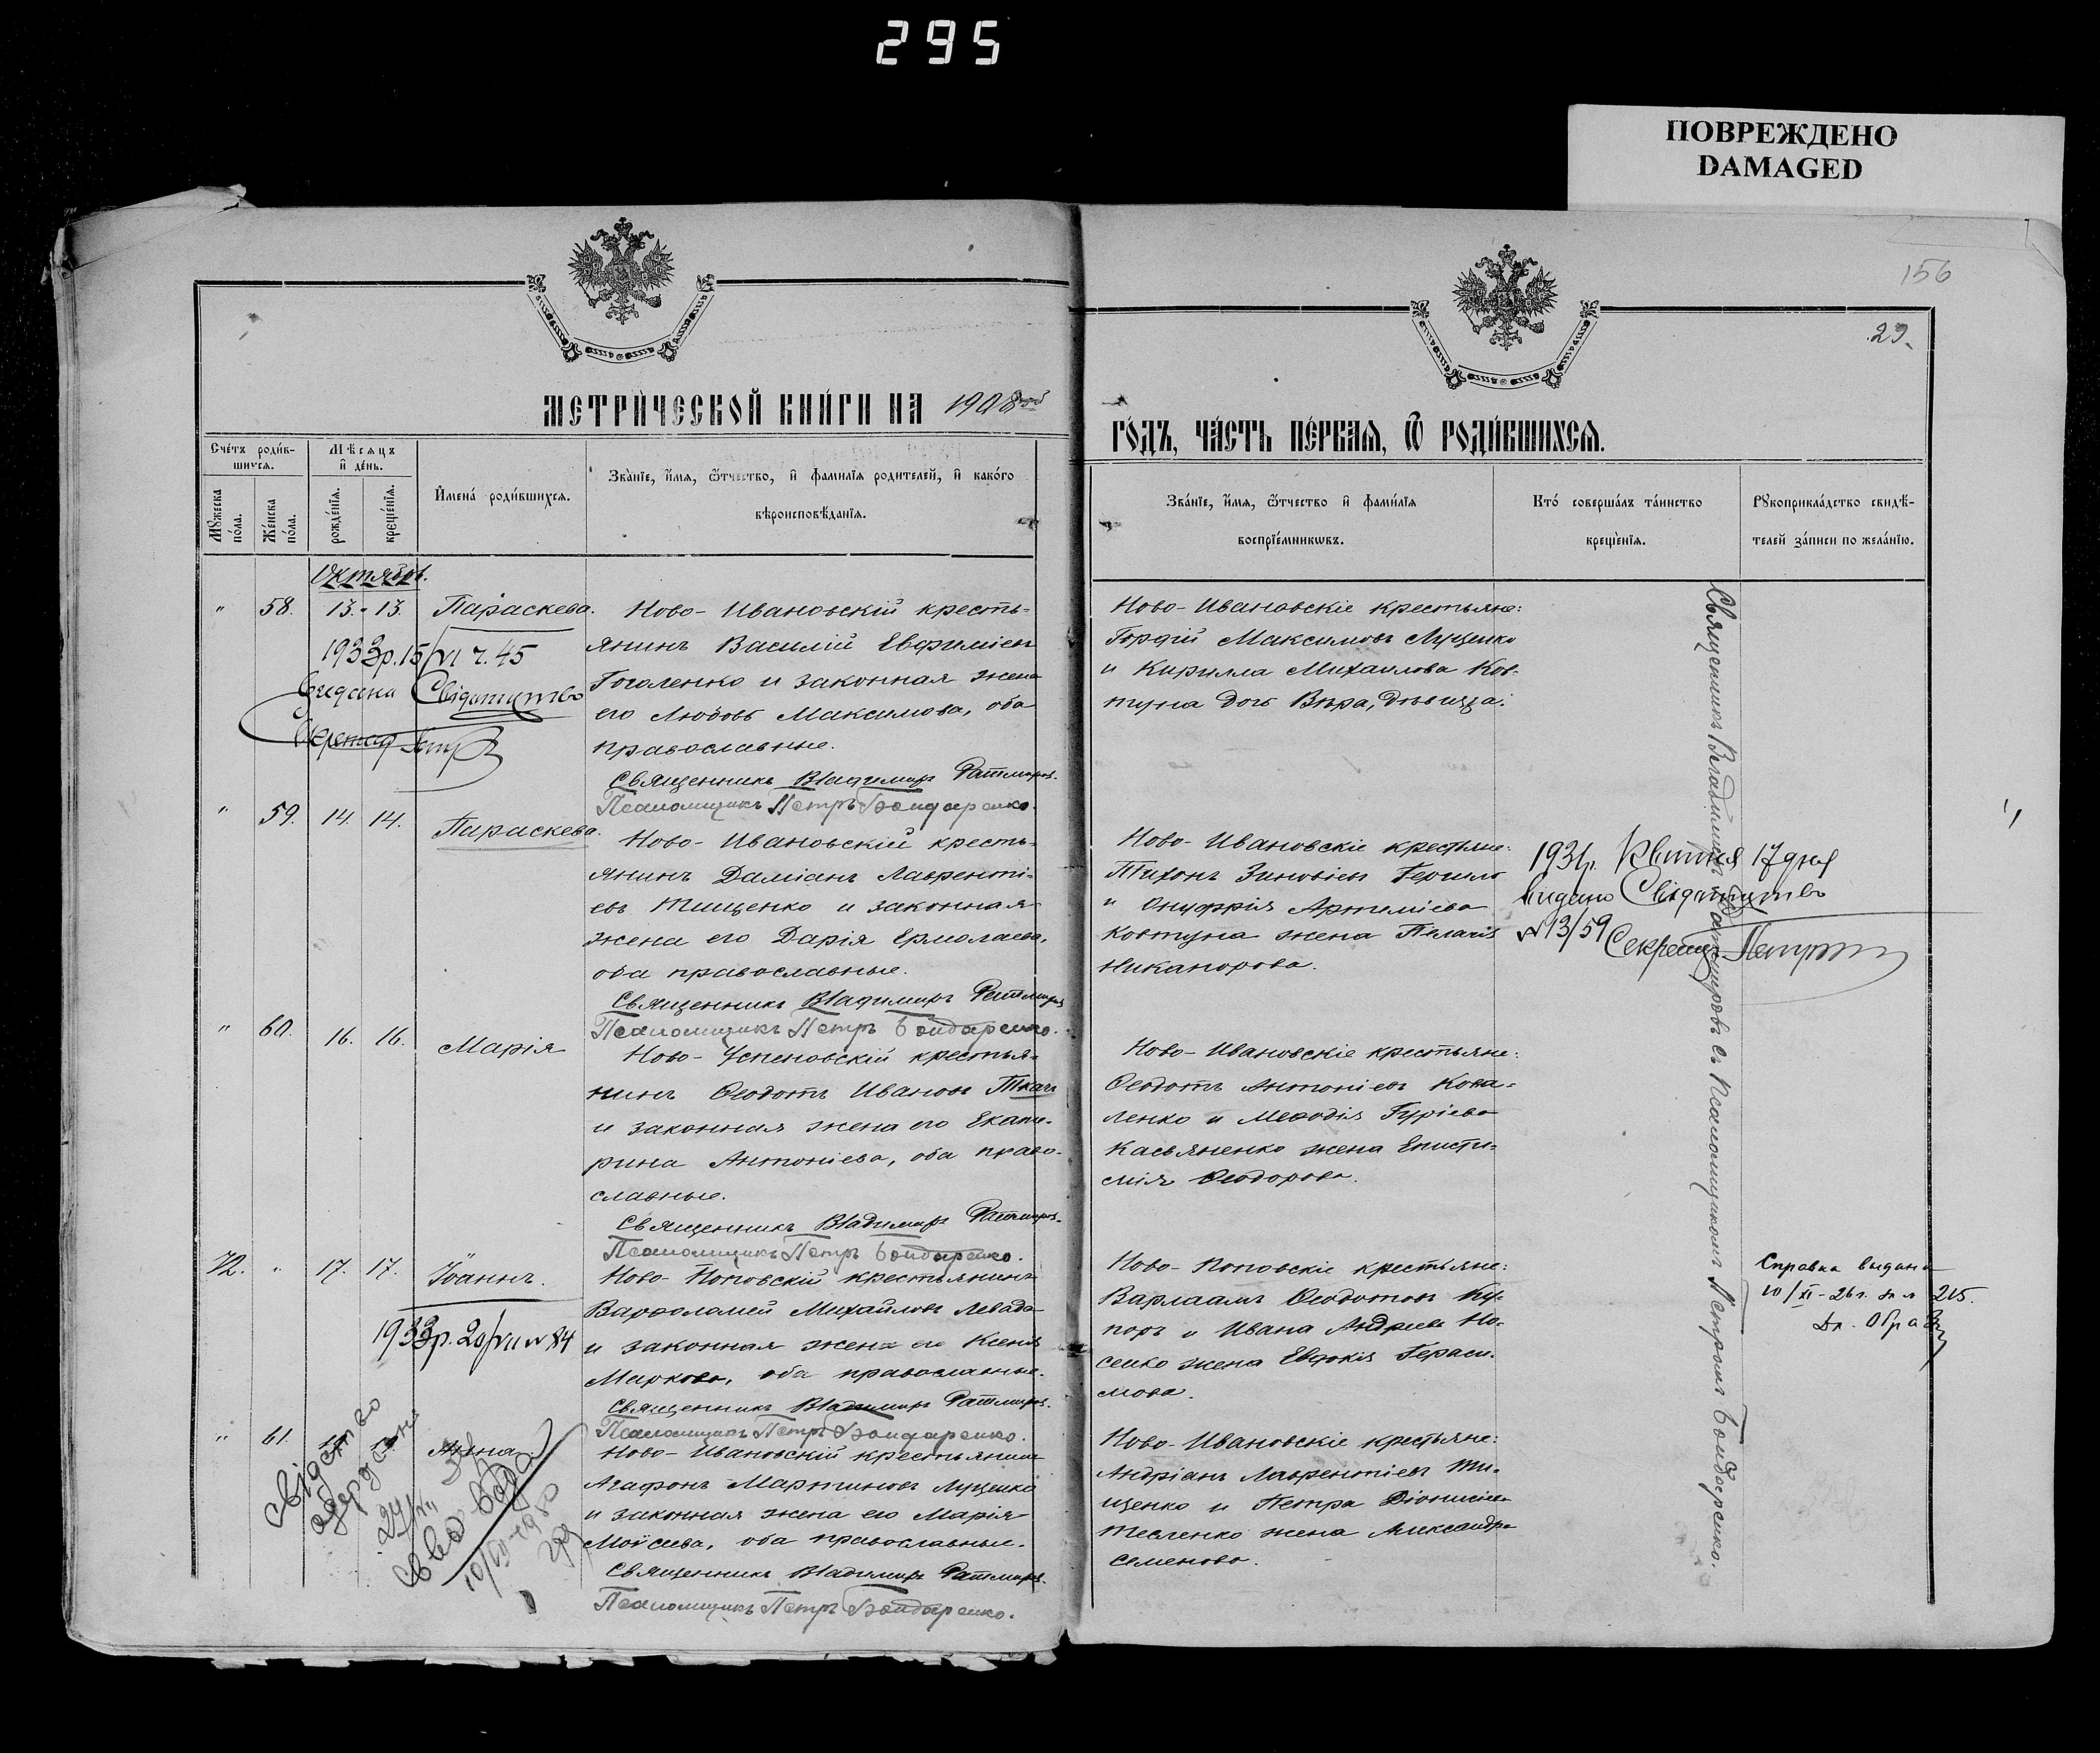 295
ПОВРЕЖДЕНО
DAMAGED
156
29.
МЕТРИ́ЧЕСКОЙ КНИ́ГИ НА 1908
ГО́ДЪ, ЧА́СТЬ ПЕ́РВАЯ, Ѿ РОДИ́ВШИХСЯ.
Сче́тъ роди́в-
шихся.
Мѣсяцъ
и҆ де́нь.
Мꙋжеска по́ла.
Же́нска по́ла.
рожде́нїя.
креще́нїя.
И҆мена́ роди́вшихся.
Зва́нїе, и҆́мя, ѻ҆́тчество, и҆ фамилїя родителей, и҆ како́го
вѣроисповѣ́данїя.
Зва́нїе, и҆́мя, ѻ҆́тчество и҆ фами́лїя
воспрїе́мникѡвъ.
Кто́ соверша́лъ та́инство
креще́нїя.
Рꙋкоприкла́дство свидѣ́-
телей за́писи по жела́нїю.
Октябрь.
" 58. 13. 13. Параскева.
Ново-Ивановскій кресть-
янинъ Василій Евфиміевъ
Гоголенко и законная жена
его Любовь Максимова, оба
православные.
Священникъ Владимиръ Ратмиров
Псаломщикъ Петръ Бондаренко.
Ново-Ивановскіе крестьяне:
Гордій Максимовъ Луценко
и Кирилла Михаилова Ков-
туна дочь Вѣра, дѣвица.
1933р. 15/VI ч. 45
видана Свідоцтво
" 59. 14. 14. Параскева.
Ново-Ивановскій кресть-
янинъ Даміанъ Лаврентi-
евъ Тищенко и законная
жена его Дарія Ермолаева,
оба православные.
Священникъ Владимиръ Ратмиров
Псаломщикъ Петръ Бондаренко.
Ново-Ивановскіе крестьяне:
Тихонъ Зиновіевъ
и Онуфрія Артеміева
Ковтуна жена Пелагія
Никанорова.
193 р. Квітня 17 дня
видано Свідоцтво
№13/59 Секретар
" 60. 16. 16. Марія
Ново-Успеновскій крестья-
нинъ Ѳеодотъ Ивановъ Ткачъ
и законная жена его Екате-
рина Антоніева, оба право-
славные.
Священникъ Владимиръ Ратмиров
Псаломщикъ Петръ Бондаренко.
Ново-Ивановскіе крестьяне:
Ѳеодотъ Антоніевъ Кова-
ленко и Меѳодія Гуріева
Касьяненко жена Еписти-
мія Ѳеодорова.
72. " 17. 17. Іоаннъ.
Ново-Поповскій крестьянинъ
Варѳоломей Михайловъ Левада
и законная жена его Ксенія
Маркова, оба православные.
Священникъ Владимиръ Ратмиров
Псаломщикъ Петръ Бондаренко.
Ново-Поповскіе крестьяне:
Варлаамъ Ѳеодотовъ Ку-
поръ и Ивана Андреева Но-
сенко жена Евдокія Гераси-
мова.
Справка выдана
10/XI-26г. за № 215.
1933р. 20/VII № 84
" 61. Анна
Ново-Ивановскій крестьянинъ
Агафонъ Мартиновъ Луценко
и законная жена его Марія
Моѵсеева, оба православные.
Священникъ Владимиръ Ратмиров
Псаломщикъ Петръ Бондаренко.
Ново-Ивановскіе крестьяне:
Андріанъ Лаврентіевъ Ти-
щенко и Петра Діонисіева
Тесленко жена Александра
Семенова.
Священникъ Владимиръ Ратмировъ съ Псаломщикомъ Петромъ Бондаренко.